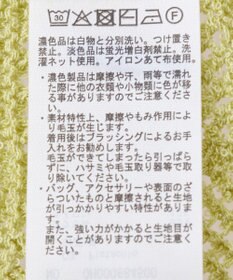 濃色品は白物と分別洗い。つけ置き
禁止。淡色品は蛍光増白剤禁止。洗
濯ネット使用。アイロンあて布使用。
・濃色製品は摩擦や汗、雨等で濡れ
た際に他の衣類や小物類に色が移
る事がありますのでご注意くださ
い。
・素材特性上、摩擦やもみ作用によ
り毛玉が生じます。
着用後はブラッシングによるお手
入れをお勧めします。
毛玉ができてしまったら引っぱら
ずに、ハサミや毛玉取り器等で取
り除いてください。
・バッグ、アクセサリーや表面のざ
らついたものと摩擦されると生地
が引っかかりやすい特性がありま
す。
また、強い力がかかると生地目が
開くことがありますのでご注意く
ださい。